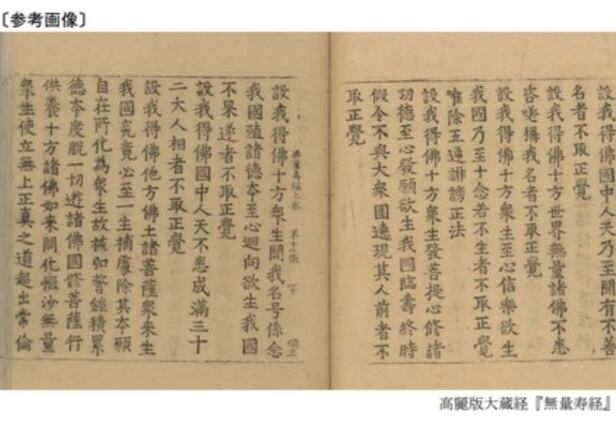 〔参考画像〕
設我得佛國中人天乃至聞有不善
名者不取正覺
設我得佛十方世界無量諸佛不悉
咨嗟稱我名者不取正覺
設我得佛十方衆生至心信樂欲生
我國乃至十念若不生者不取正覺
唯除五逆誹謗正法
設我得佛十方衆生發菩提心修諸
功德至心發願欲生我國臨壽終時
假令不與大衆圍遶現其人前者不
取正覺
設我得佛十方衆生聞我名号係念
無量壽經上卷
我國殖諸德本至心迴向欲生我國
不果遂者不取正覺
設我得佛國中人天不悉成滿三十
二大人相者不取正覺
設我得佛他方佛土諸菩薩衆來生
我國究竟必至一生補處除其本願
自在所化為衆生故被弘誓鎧積累
德本度脫一切遊諸佛國修菩薩行
供養十方諸佛如來開化恒沙無量
衆生使立無上正真之道超出常倫
高麗版大蔵経『無量寿経』